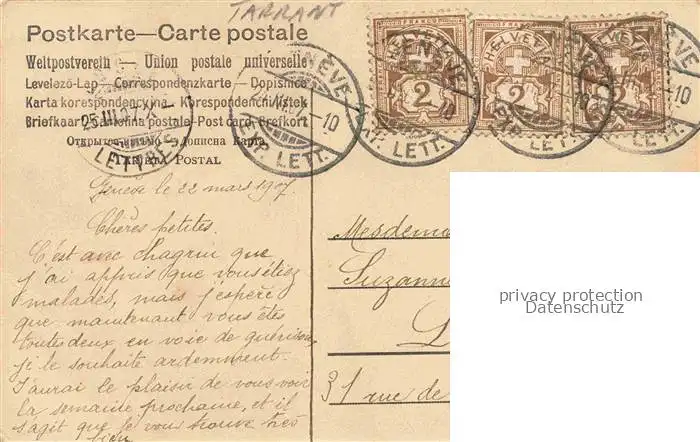 TARRANT
Postkarte — Carte postale
Weltpostverein — Union postale universelle
Levelező-Lap — Correspondenzkarte — Dopisnice
Karta korespondencyjna — Korespondenční lístek
Briefkaart — Cartolina postale — Post card — Brefkort
Открытое письмо — Дописна Карта
Tarjeta Postal
HELVETIA
2
HELVETIA
2
HELVETIA
2
FRANCO
GENÈVE
EXP. LETT.
GENÈVE
EXP. LETT.
-10
25.III.
LETTRES
Genève le 22 mars 1907
Chères petites.
C'est avec chagrin que
j'ai appris que vous étiez
malades, mais j'espère
que maintenant vous êtes
toutes deux en voie de guérison,
je le souhaite ardemment.
J'aurai le plaisir de vous voir
la semaine prochaine, et il
s'agit que je vous trouve très
bien
Mesdemo
Suzanne
L
31 rue de
privacy protection
Datenschutz